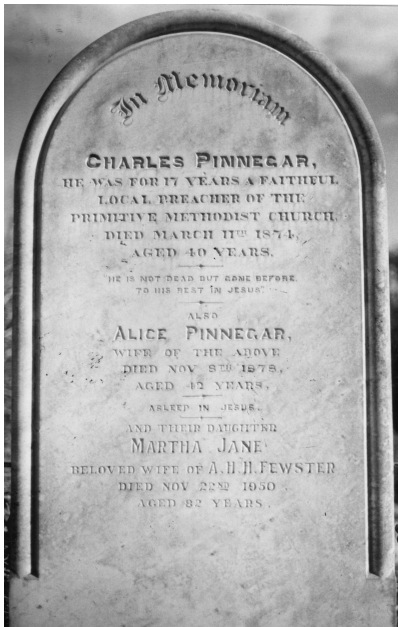 In Memoriam
CHARLES PINNEGAR,
HE WAS FOR 17 YEARS A FAITHFUL
LOCAL PREACHER OF THE
PRIMITIVE METHODIST CHURCH.
DIED MARCH 11TH 1874,
AGED 40 YEARS.
"HE IS NOT DEAD BUT GONE BEFORE
TO HIS REST IN JESUS".
ALSO
ALICE PINNEGAR,
WIFE OF THE ABOVE
DIED NOV 8TH 1878,
AGED 42 YEARS,
ASLEEP IN JESUS.
AND THEIR DAUGHTER
MARTHA JANE
BELOVED WIFE OF A.H.H. FEWSTER
DIED NOV 22ND 1950
AGED 82 YEARS